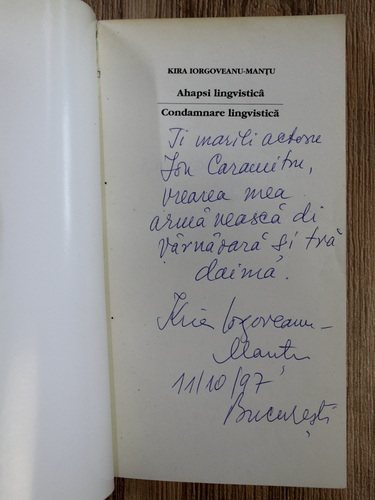 KIRA IORGOVEANU-MANȚU
Ahapsi lingvisticâ
Condamnare lingvistică
Ti marili actoru
Ion Caramitru,
vrearea mea
armănească di
vărnăoară și tră
daima.
Kira Iorgoveanu-
Manțu
11/10/97
București